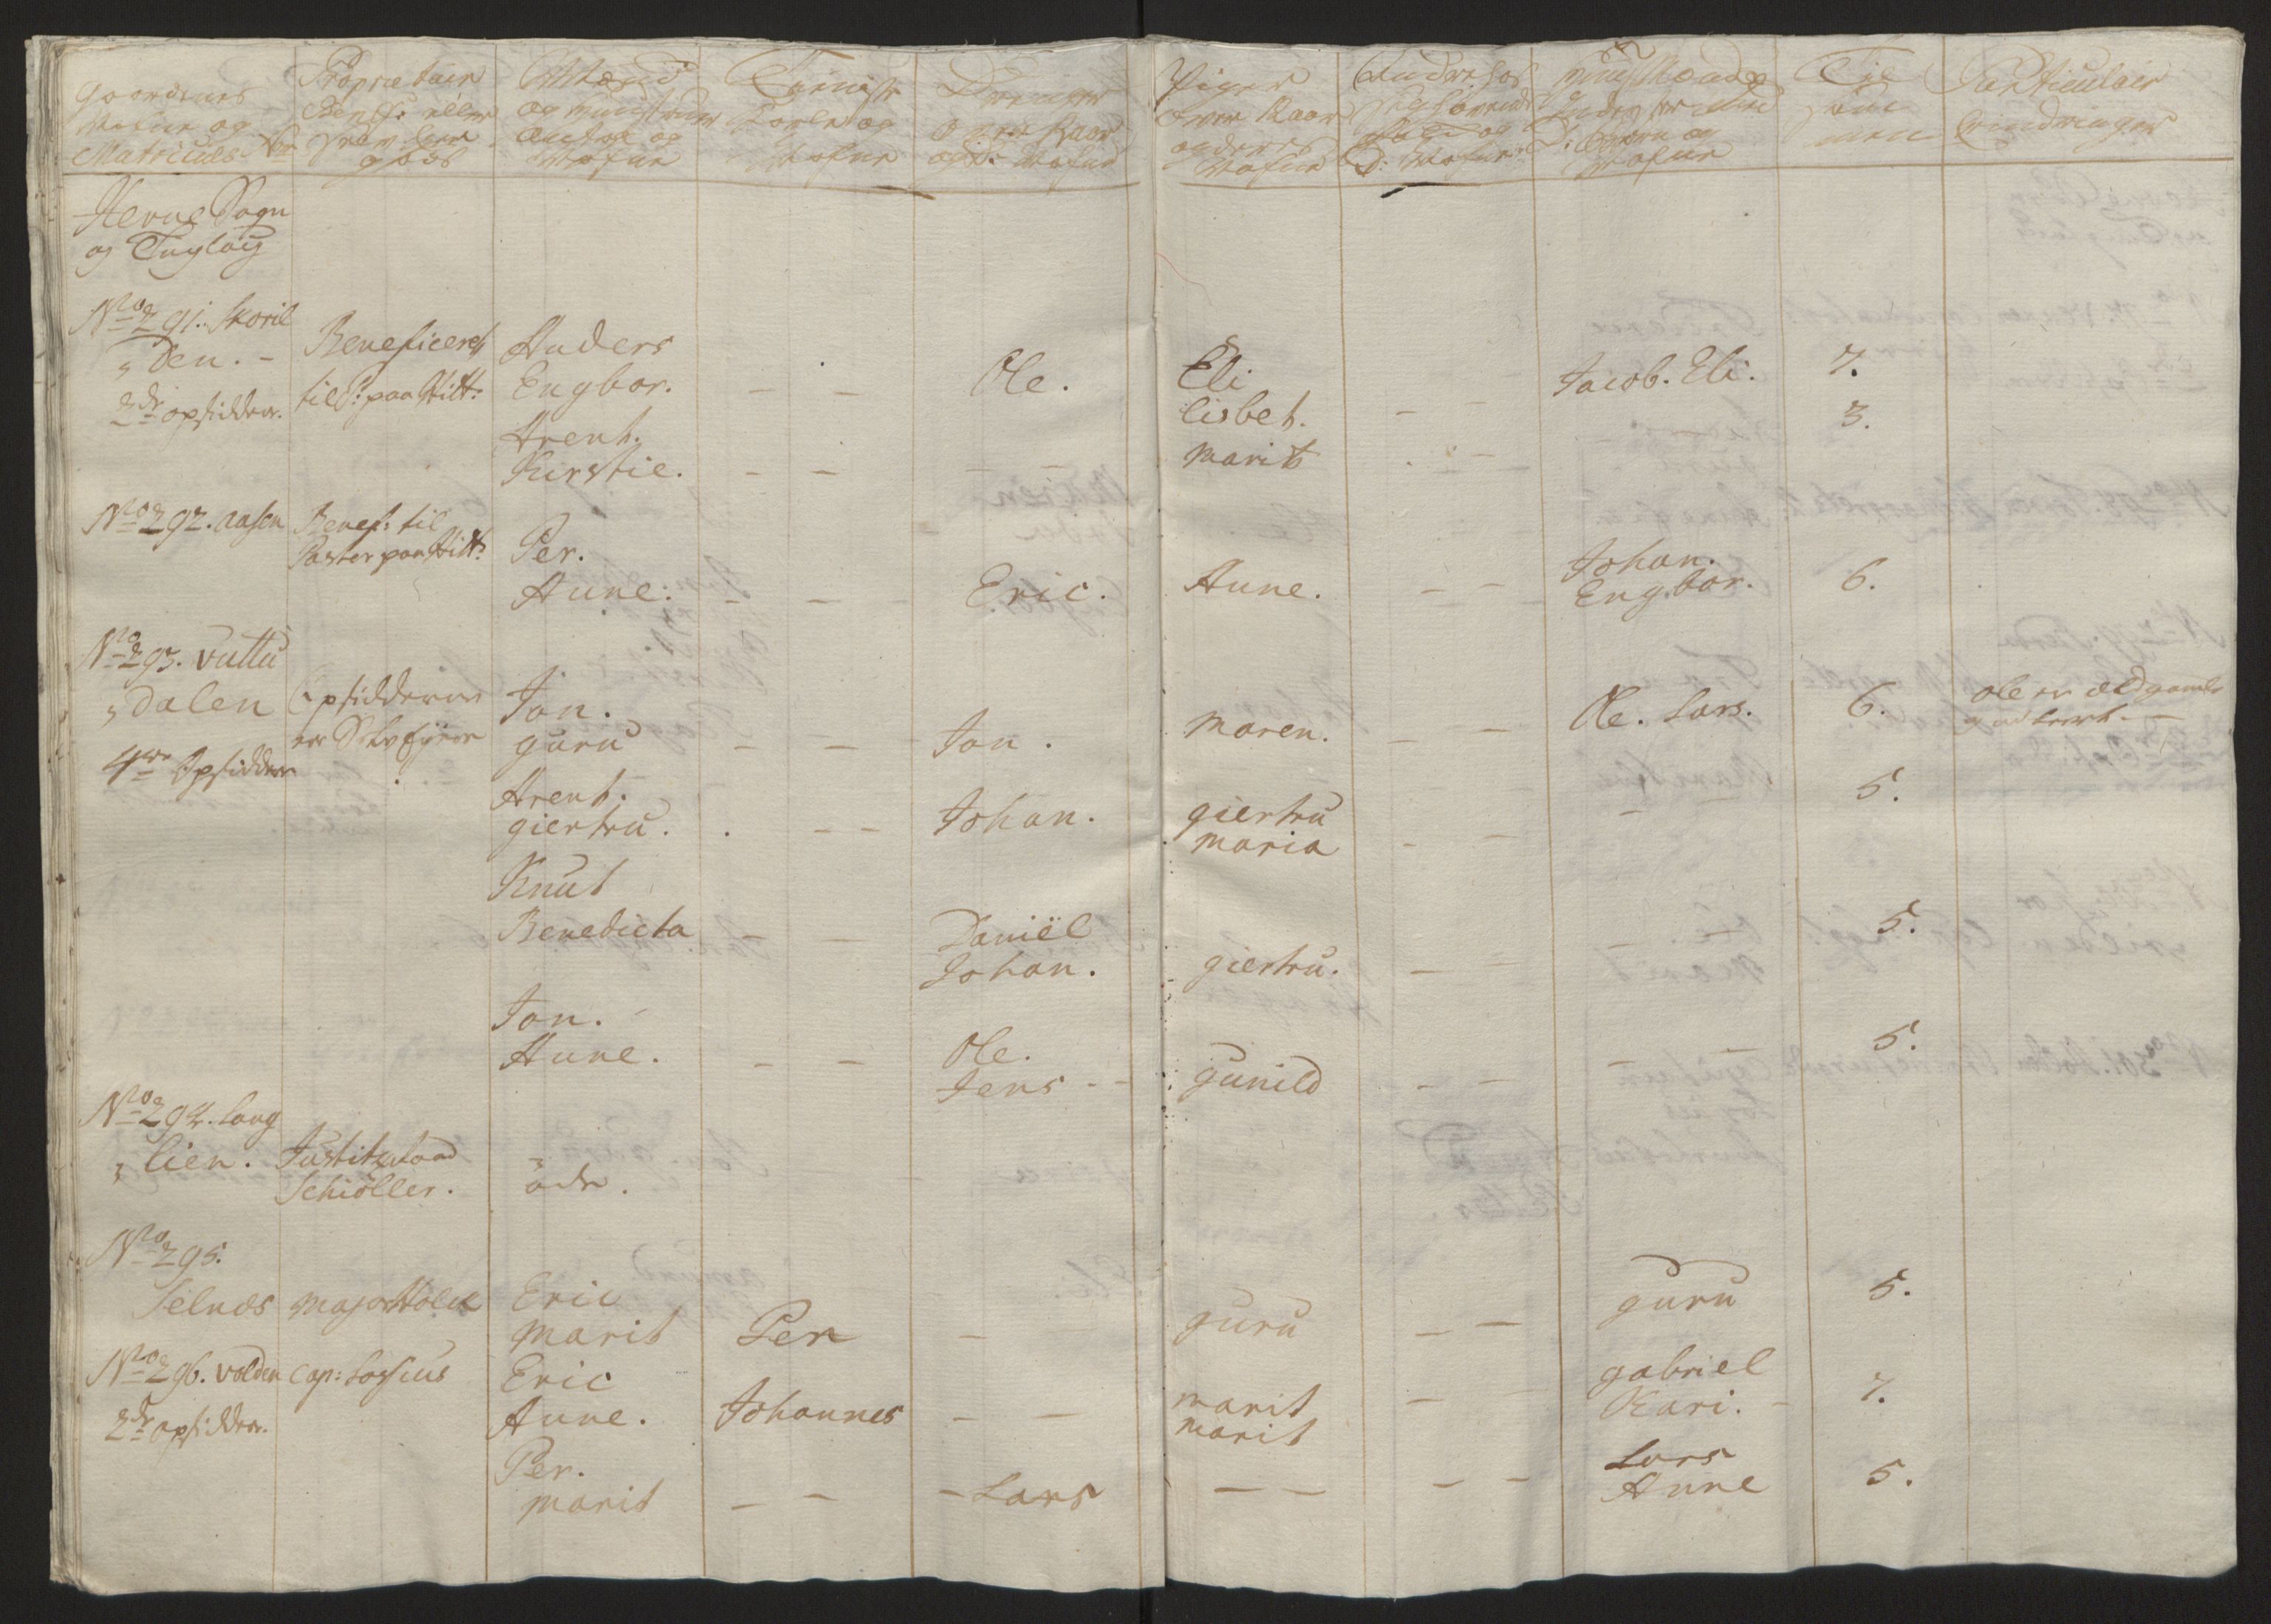 Gaardenes
Nafne og
Matricul: No
Proprietair
Benef: eller
gods
Mænd
og
Nafne
Tieniste
Karle og
Nafne
Drenger
over Aar
og d: Nafne
Piger
over Aar
og deres
Nafne
og
D: Nafne
Børn og
Nafne
Til
sam
men
Particulair
Erindringer
Hevne Sogn
og Tinglaug
No 291. Skoril
den. -
2de opsiddere.
Beneficeret
til P: paa Hitt:
Anders
Engbor. - -
Ole.
Eli
lisbet. - -
Jacob. Eli.
7.
Arent.
Kirstie. - - - -
Marit - -
3.
No 292. Aasen
Benef: til
Paster paa Hitt:
Per.
Anne. - -
Eric.
Anne. -
Johan.
Engbor.
6.
No 293. Vuttu
dalen
4re Opsiddere
Opsidderne
er Selv Eyere
Jon.
guru - -
Jon.
Maren. - -
Ole. Lars.
6.
Ole er ældgamle
Arent.
giertru. - -
Johan.
giertru
Maria - - -
5.
Knut
Benedicta - -
Daniël
Johan.
giertru. - - -
5.
Jon.
Anne. - -
Ole.
Jens - -
gunild - - - -
5.
No 294. Lang
lien.
Justitzraad
Schiöller.
öde.
No 295.
Selnes
Major Holck
Eric
Marit
Per - -
guru - -
guru
5.
No 296. Volden
2de opsiddere.
Cap: Lossius
Eric
Anne.
Johannes - -
Marit
Marit -
gabriel
Kari. -
7.
Per.
Marit - -
- Lars
- - - -
Lars
Anne
5.